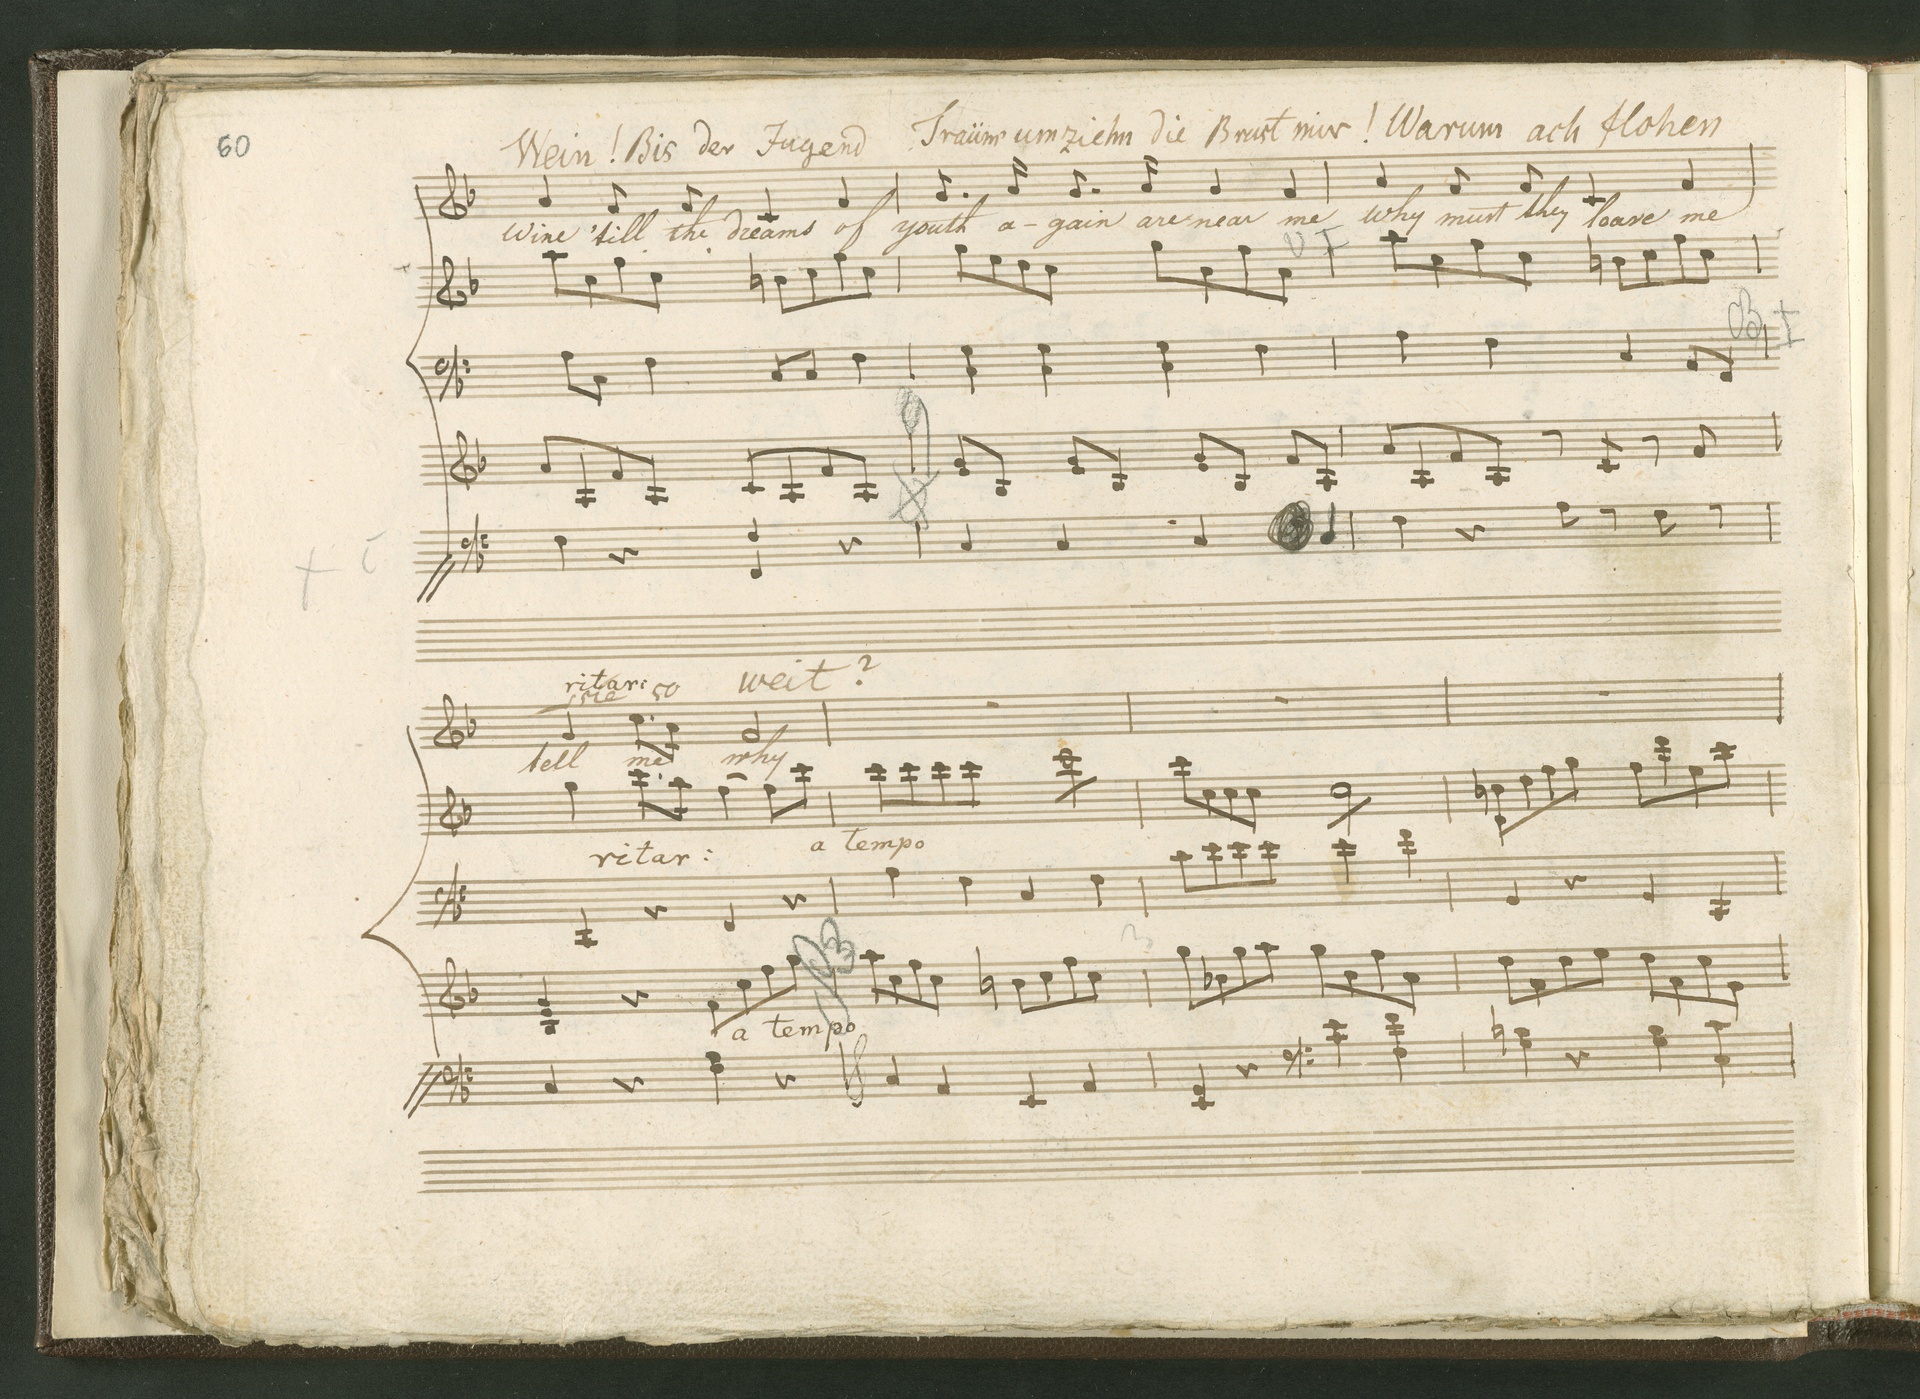 60
Wein! Bis der Jugend Träum' umziehn die Brust mir! Warum ach flohen
wine 'till the dreams of youth a-gain are near me why must they leave me
ritar:
sie so weit?
tell me why
ritar: a tempo
a tempo